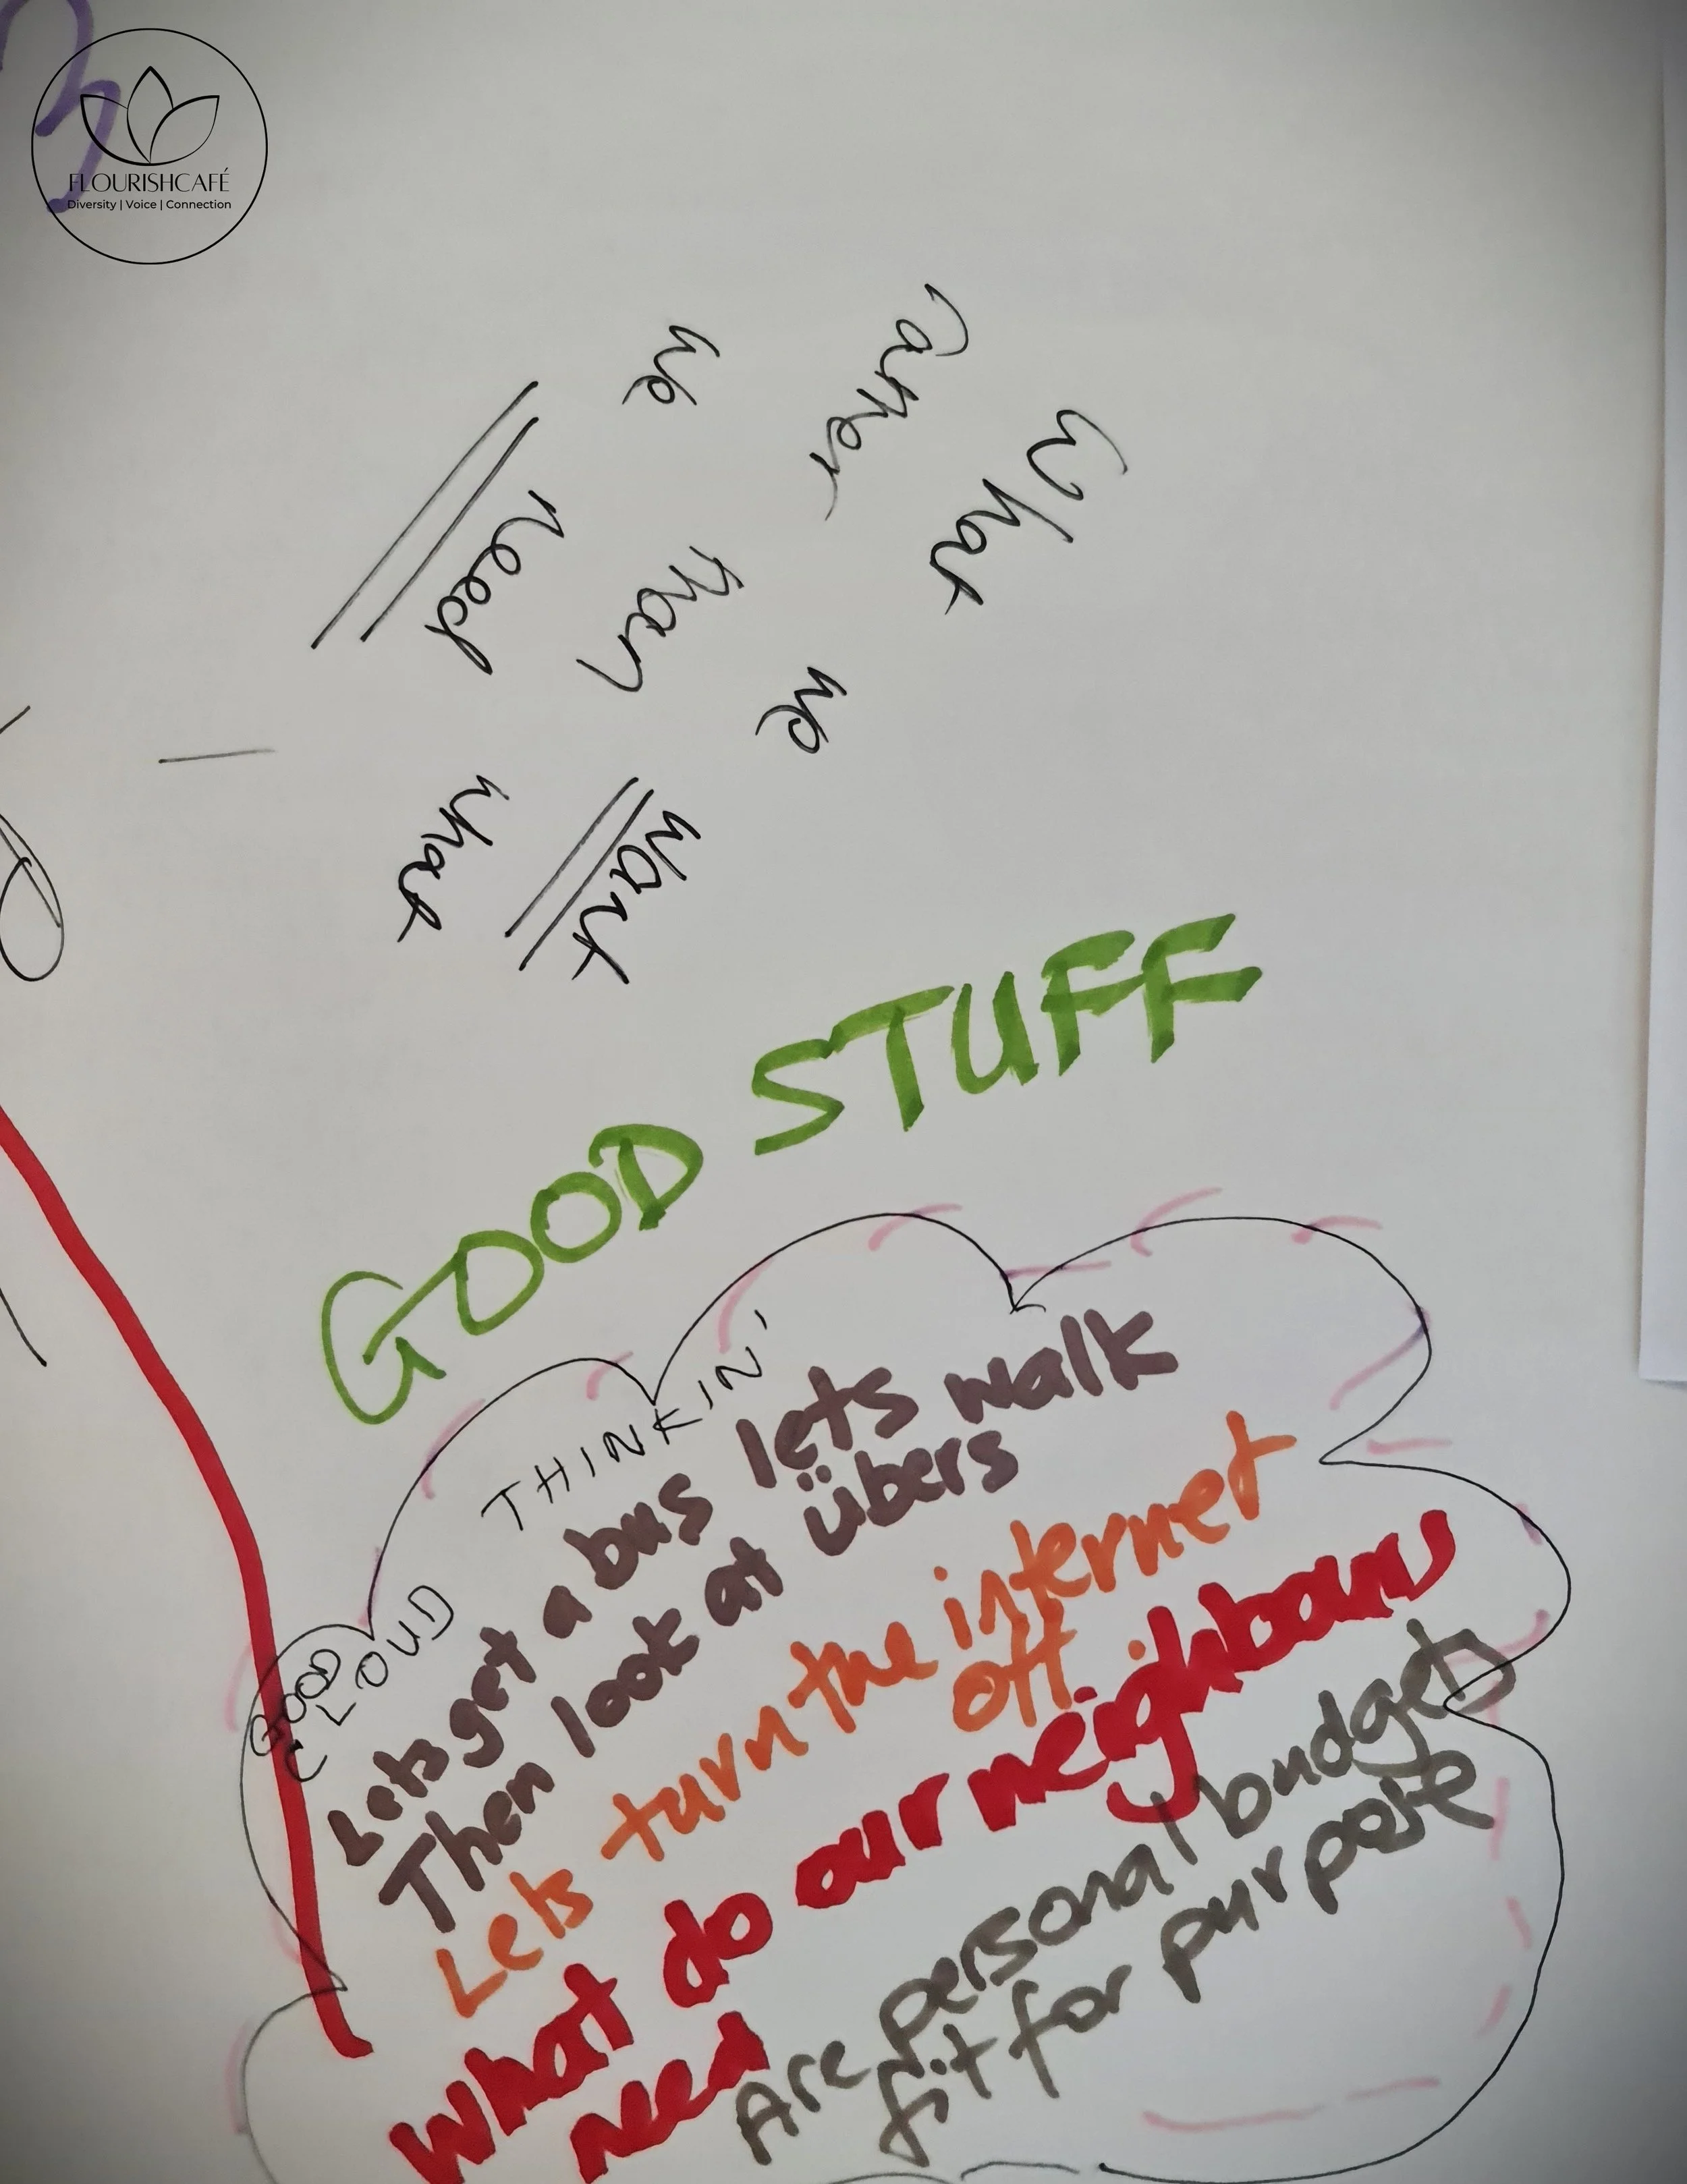 FLOURISHCAFÉ
Diversity | Voice | Connection
What we want
rather than what
we need
GOOD STUFF
GOOD
CLOUD THINKIN'
Lets get a bus lets walk
Then look at übers
Lets turn the internet
off
What do our neighbours
need
Are personal budgets
fit for purpose